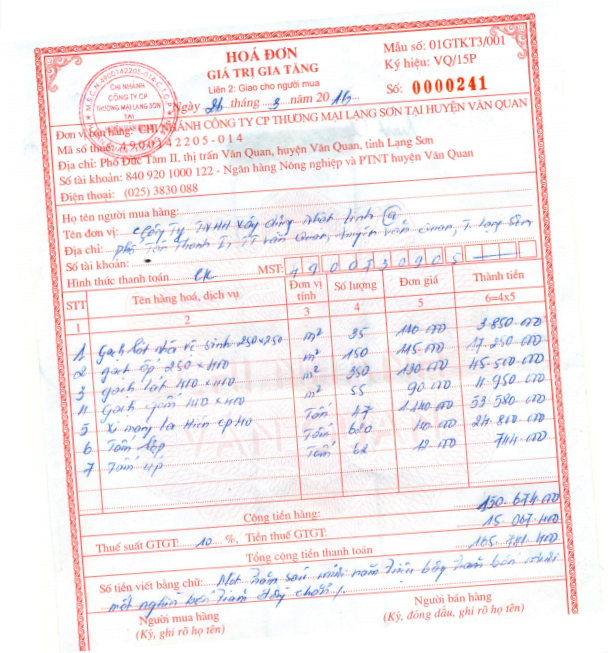 HOÁ ĐƠN
GIÁ TRỊ GIA TĂNG
Liên 2: Giao cho người mua
Ngày 26 tháng 3 năm 2016
Mẫu số: 01GTKT3/001
Ký hiệu: VQ/15P
Số: 0000241
CHI NHÁNH
CÔNG TY CP
THƯƠNG MẠI LẠNG SƠN
TẠI
Đơn vị bán hàng: CHI NHÁNH CÔNG TY CP THƯƠNG MẠI LẠNG SƠN TẠI HUYỆN VĂN QUAN
Mã số thuế: 4900142205-014
Địa chỉ: Phố Đức Tâm II, thị trấn Văn Quan, huyện Văn Quan, tỉnh Lạng Sơn
Số tài khoản: 840 920 1000 122 - Ngân hàng Nông nghiệp và PTNT huyện Văn Quan
Điện thoại: (025) 3830 088
Họ tên người mua hàng:
Tên đơn vị: Công ty TNHH xây dựng Nhật Linh
Địa chỉ: phố Tân Thanh I, TT Văn Quan, huyện Văn Quan, T. Lạng Sơn
Số tài khoản:
Hình thức thanh toán CK MST:
STT Tên hàng hoá, dịch vụ Đơn vị tính Số lượng Đơn giá Thành tiền
1 2 3 4 5 6=4x5
1 gạch vệ sinh 250x250 m² 35 110 000 3 850 000
2 gạch ốp 250 x 400 m² 150 115 000 17 250 000
3 gạch lát 400 x 400 m² 350 130 000 45 500 000
4 Gạch gốm 400 x 400 m² 55 90 000 4 950 000
5 Xi măng La Hiên CP40 Tấn 47 1.140 000 53 580 000
6 Tấm lợp Tấm 620 40 000 24 800 000
7 Tấm úp Tấm 62 12 000 744 000
Cộng tiền hàng: 150 674 000
Thuế suất GTGT: 10 %, Tiền thuế GTGT: 15 067 400
Tổng cộng tiền thanh toán 165 741 400
Số tiền viết bằng chữ: Một trăm sáu mươi năm triệu bảy trăm bốn mươi
mốt nghìn bốn trăm đồng chẵn /.
Người mua hàng
(Ký, ghi rõ họ tên)
Người bán hàng
(Ký, đóng dấu, ghi rõ họ tên)